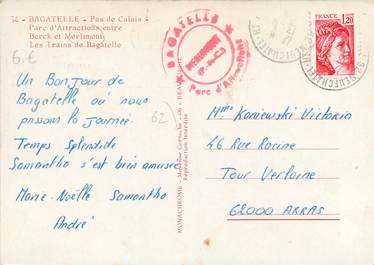 54 - BAGATELLE - Pas de Calais -
Parc d'Attractions entre
Berck et Merlimont
Les Trains de Bagatelle
6 €
Un Bonjour de
Bagatelle où nous
passons la journée.
Temps Splendide
Samantha s'est bien amusée
Marie-Noëlle Samantha
André
62
BAGATELLE
MERLIMONT
Parc d'Attractions
MONACHROME -
Reproduction interdite
1,20
Mme Koniewski Victoria
46 Rue Racine
Tour Verlaine
62000 ARRAS